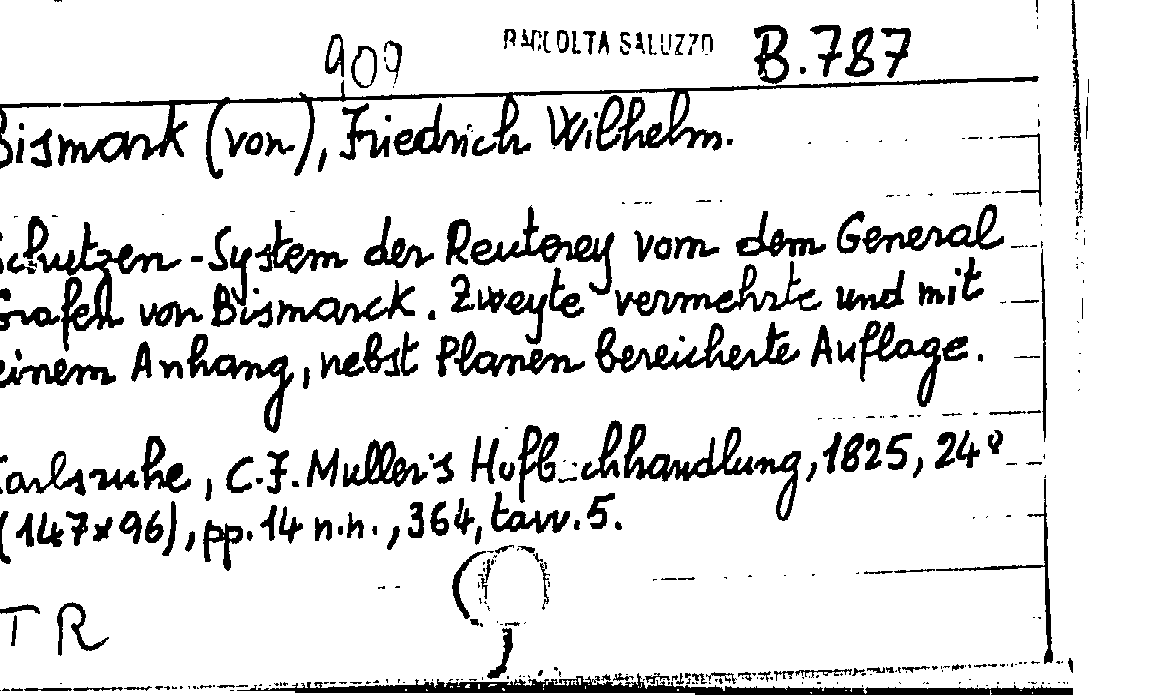 909 RACCOLTA SALUZZO B.787
Bismark (von), Friedrich Wilhelm.
Schutzen-System der Reuterey vom dem General
Grafen von Bismarck. Zweyte vermehrte und mit
einem Anhang, nebst Planen bereicherte Auflage.
Karlsruhe, C.F. Muller's Hofbuchhandlung, 1825, 24°
(147x96), pp. 14 n.n., 364, tavv. 5.
TR